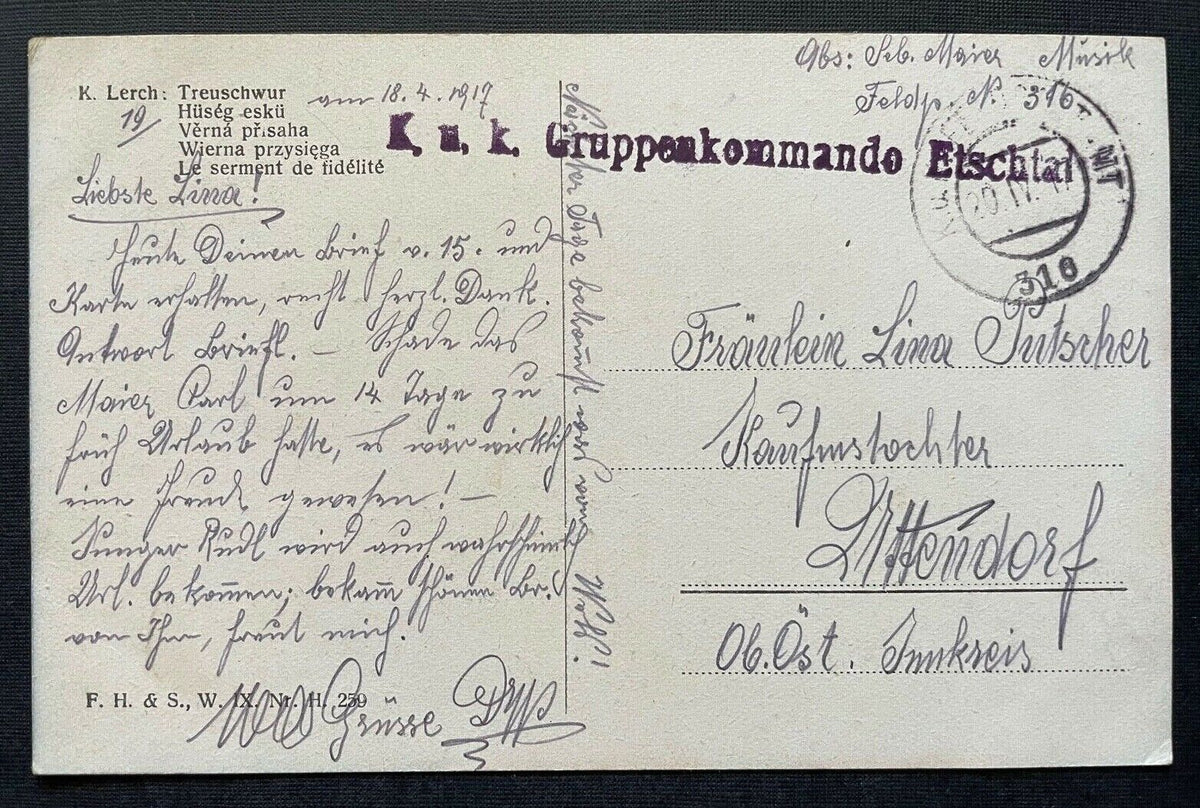 Abs: Seb. Maier Musik
Feldp. Nr. 316
K. Lerch: Treuschwur
Hüség eskü
Věrná přisaha
Wierna przysięga
Le serment de fidélité
19/
am 18.4.1917
K. u. k. Gruppenkommando Etschtal
20.IV.17
316
Liebste Lina!
Heute Deinen Brief v. 15. und
Karte erhalten, recht herzl. Dank.
Antwort briefl. – Schade das
Maier Carl um 14 Tage zu
früh Urlaub hatte, es wär wirklich
eine Freude gewesen! –
Junger Rudl wird auch wahrscheinlich
Url. bekom̅en; bekam schönen Br.
von Ihm, freut mich.
Grüsse
Nächster Tage
Fräulein Lina Putscher
Kaufmstochter
Uttendorf
Ob. Öst. Innkreis
F. H. & S., W. IX. Nr. H. 259